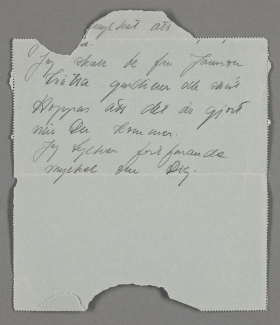 mycket att
Jag skall be fru Jonsson
tvätta gardiner och sånt
Hoppas att det är gjort
när Du kommer.
Jag tycker fortfarande
mycket om Dig.